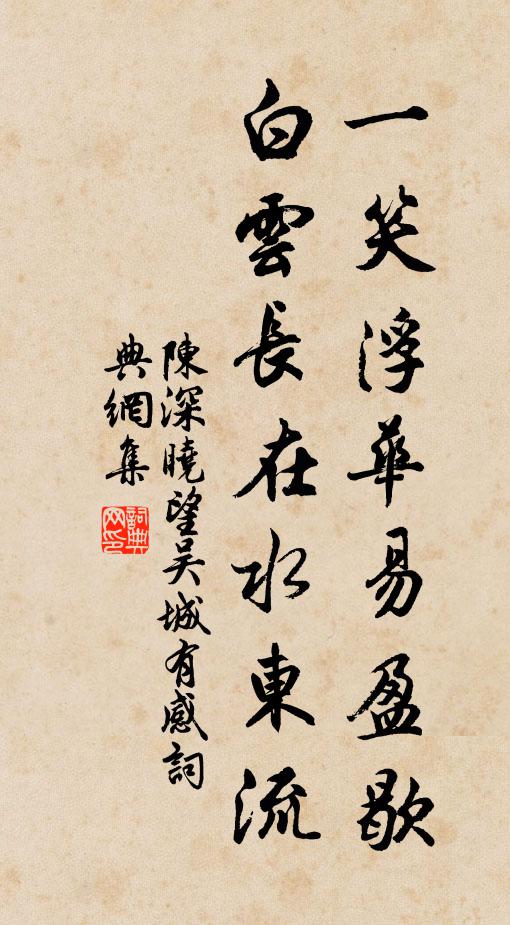 一笑浮華易盈歇
白雲長在水東流
陳深曉望吴城有感詞
典網集
詞典網印